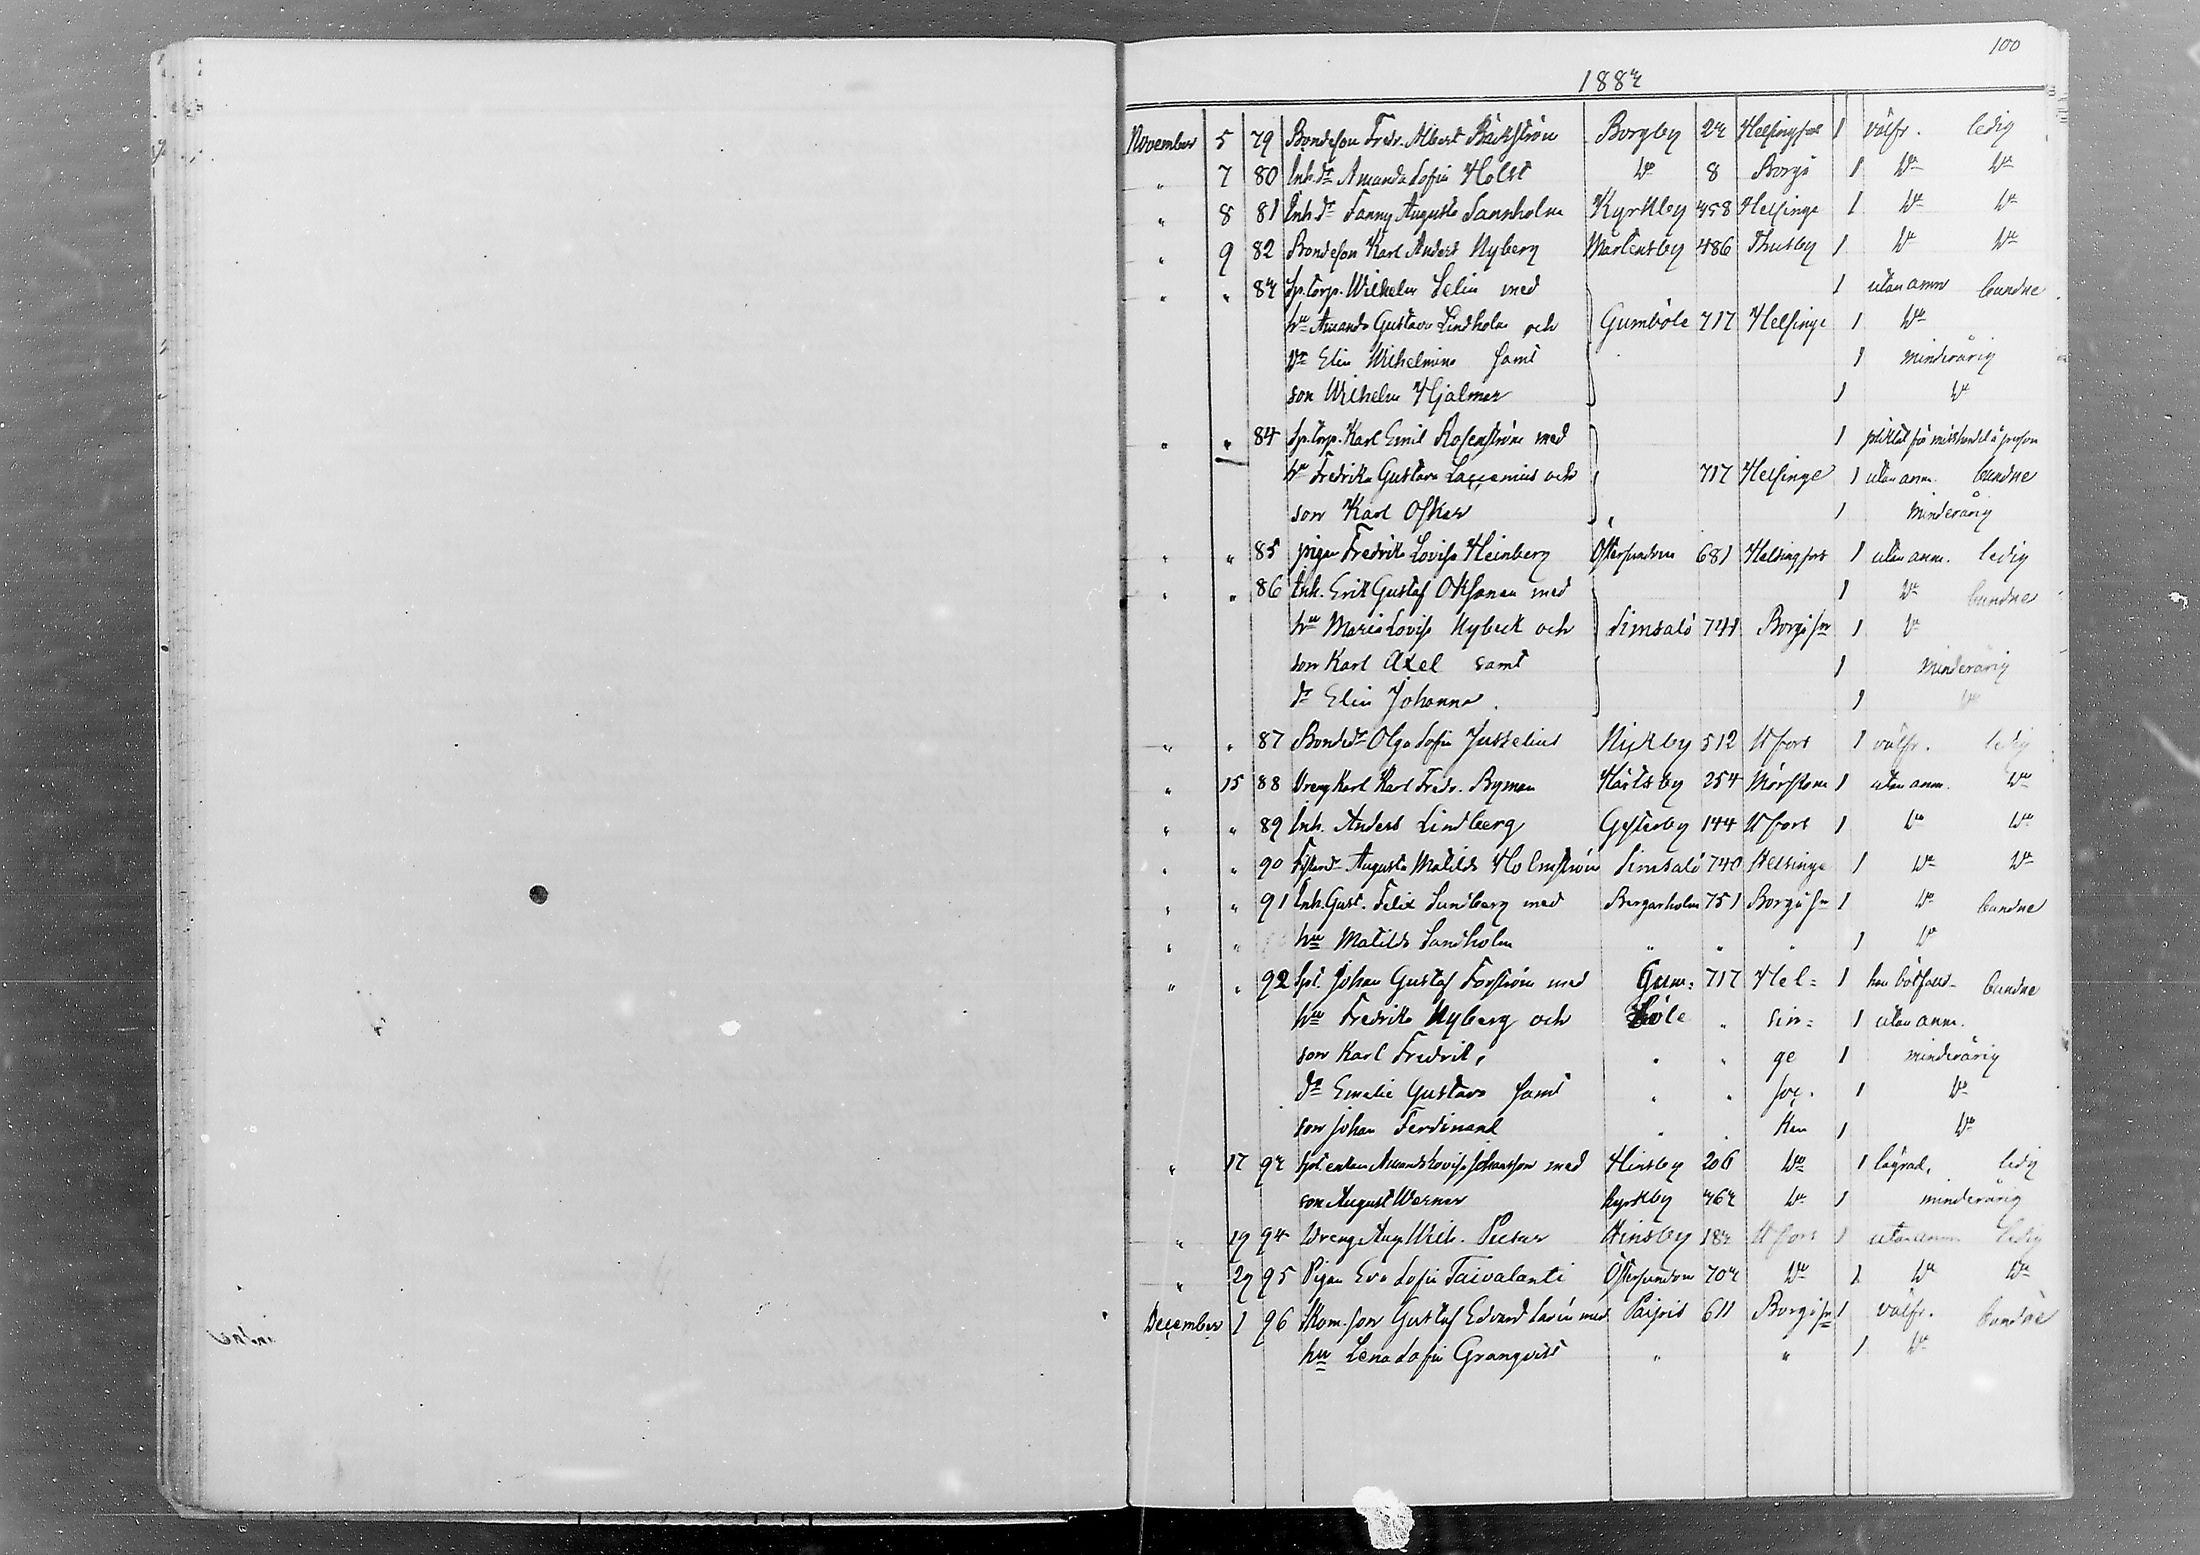 100
1883
November 5 79 Bondeson Fredr. Albert Bäckström Borgby 23 Helsingfors 1 välfr. ledig
" 7 80 Inh. dr Amanda Sofia Holst Do 8 Borgå 1 Do Do
" 8 81 Inh. dr Fanny Augusta Sannholm Kyrkby 458 Helsinge 1 Do Do
" 9 82 Bondeson Karl Anders Nyberg Mårtensby 486 Thusby 1 Do Do
" " 83 Sp. torp. Wilhelm Selin med 1 utan anm bundne
hu Amanda Gustava Lindholm och Gumböle 717 Helsinge 1 Do
dr Elin Wilhelmina samt 1 minderårig
son Wilhelm Hjalmar 1 Do
" " 84 Sp. torp. Karl Emil Rosenström med 1 pliktat för misshandel å person
hu Fredrika Gustava och 717 Helsinge 1 utan anm. bundne
son Karl Oskar 1 minderårig
" " 85 pigan Fredrika Lovisa Heinberg Östersundom 681 Helsingfors 1 utan anm. ledig
" " 86 Inh. Erik Gustaf Oksanen med 1 Do bundne
hu Maria Lovisa Nybeck och Simsalö 741 Borgå sn 1 Do
son Karl Axel samt 1 minderårig
dr Elin Johanna. 1 Do
" " 87 Bonddr Olga Sofia Juselius Nykby 512 Hfors 1 välfr. ledig
" 15 88 Dreng Karl Fredr. Ryman Hårtsby 254 Mörskom 1 utan anm. Do
" " 89 Inh. Anders Lindberg Gesterby 144 Hfors 1 Do Do
" " 90 Augusta Matilda Holmström Simsalö 740 Helsinge 1 Do Do
" " 91 Inh. Gust. Felix Sundberg med Bergarholm 751 Borgå sn 1 Do bundne
" " hu Matilda Sandholm " " " 1 Do
" " 92 Spt. Johan Gustaf Forström med Gum= 717 Hel= 1 bundne
hu Fredrika Nyberg och böle " sin= 1 utan anm.
son Karl Fredrik, " " ge 1 minderårig
dr Emelie Gustava samt " " soc. 1 Do
son Johan Ferdinand " " ken 1 Do
" 17 93 Amanda Lovisa Johansson med Hinsby 206 Do 1 lägrad, ledig
son August Werner Kyrkby 463 Do 1 minderårig
" 19 94 Dreng Aug. Wilh. Hinsby 183 Hfors 1 utan anm ledig
" 29 95 Pigan Eva Sofia Taivalanti Östersundom 703 Do 1 Do Do
December 1 96 Skom. son Gustaf Edvard med Paipis 611 Borgå sn 1 välfr. bundne
hu Lena Sofia Granqvist " " 1 Do